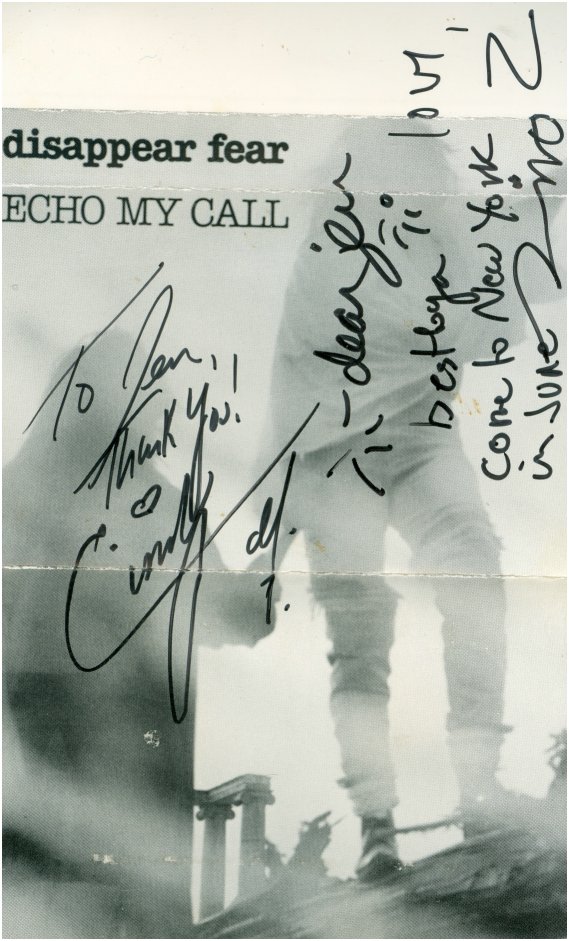 disappear fear
ECHO MY CALL
To Jen,
Thank You!!
Cindy
dearjen
besthoya
love,
come to New York
in June